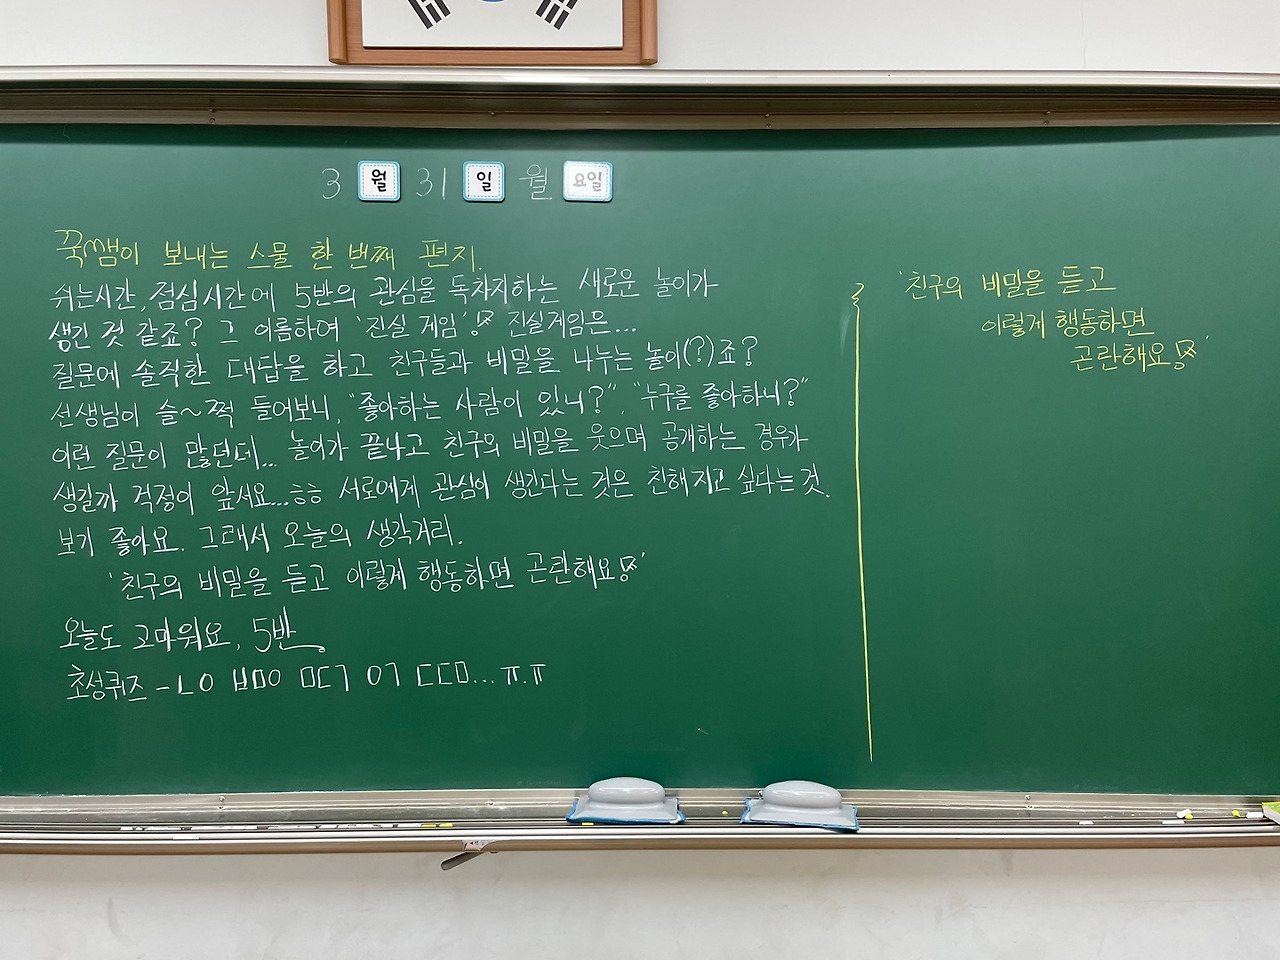 3 월 31 일 월 요일
꾹쌤이 보내는 스물 한 번째 편지.
쉬는시간, 점심시간에 5반의 관심을 독차지하는 새로운 놀이가
생긴 것 같죠? 그 이름하여 '진실 게임'! 진실게임은...
질문에 솔직한 대답을 하고 친구들과 비밀을 나누는 놀이(?)죠?
선생님이 슬~쩍 들어보니, "좋아하는 사람이 있니?", "누구를 좋아하니?"
이런 질문이 많던데... 놀이가 끝나고 친구의 비밀을 웃으며 공개하는 경우가
생길까 걱정이 앞서요...ㅎㅎ 서로에게 관심이 생긴다는 것은 친해지고 싶다는 것.
보기 좋아요. 그래서 오늘의 생각거리.
'친구의 비밀을 듣고 이렇게 행동하면 곤란해요!'
오늘도 고마워요, 5반.
초성퀴즈 - ㄴㅇ ㅂㅁㅇ ㅁㄷㄱ ㅇㄱ ㄷㄷㅁ... ㅠ.ㅠ
'친구의 비밀을 듣고
이렇게 행동하면
곤란해요!'